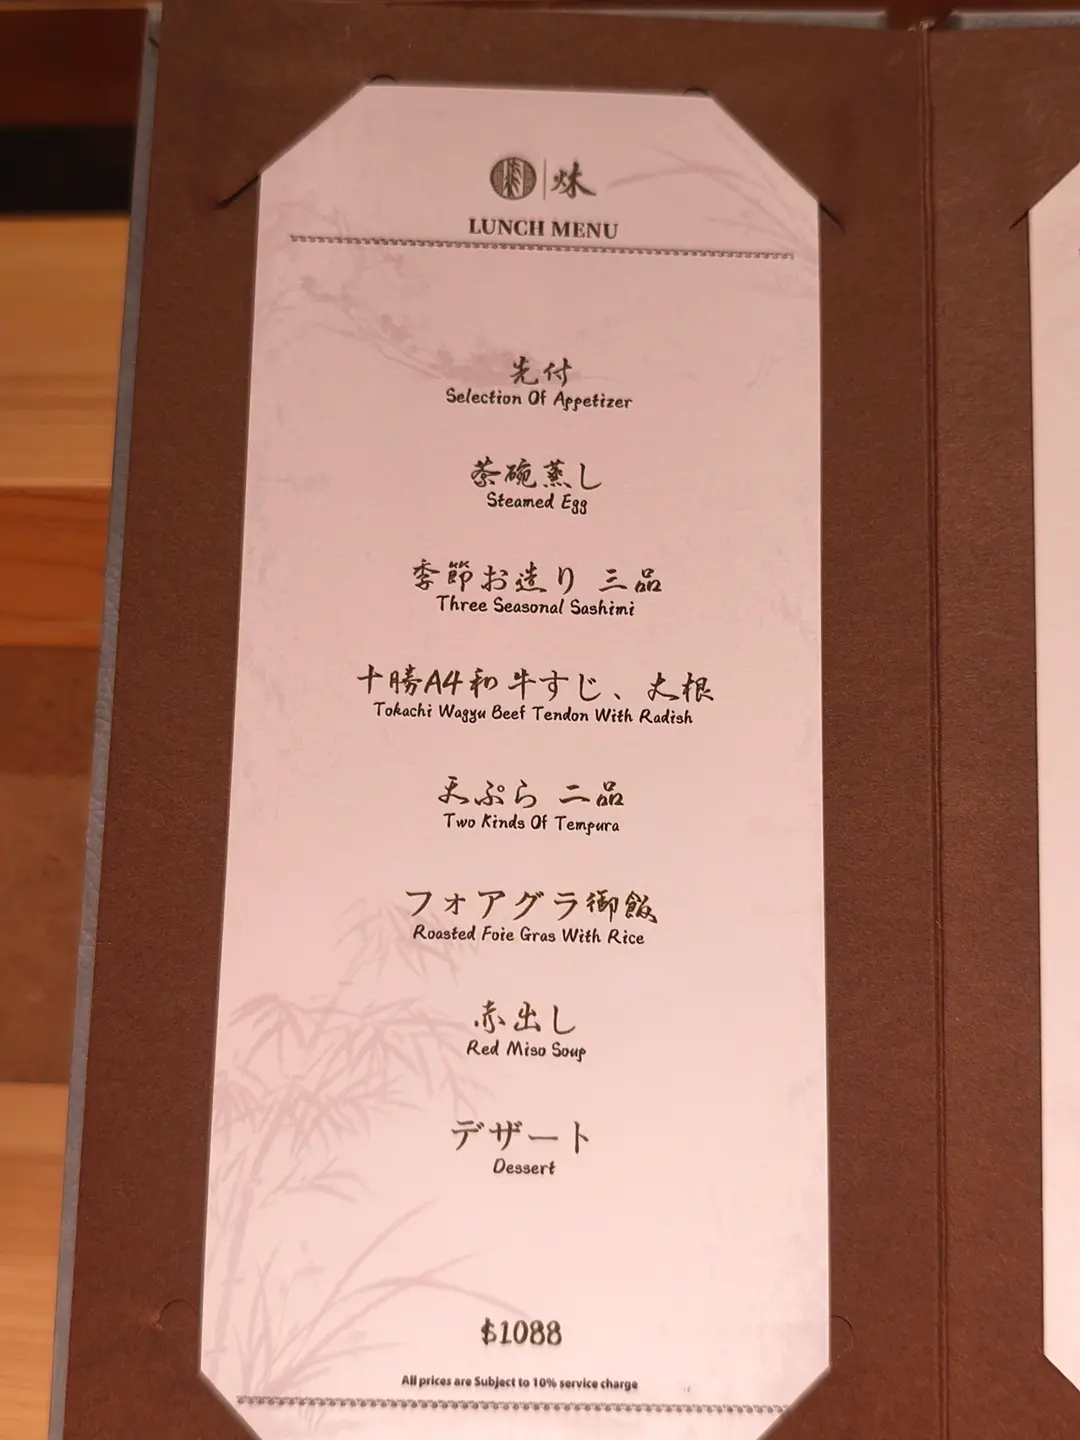 LUNCH MENU
先付
Selection Of Appetizer
茶碗蒸し
Steamed Egg
季節お造り 三品
Three Seasonal Sashimi
十勝A4和牛すじ、大根
Tokachi Wagyu Beef Tendon With Radish
天ぷら 二品
Two Kinds Of Tempura
フォアグラ御飯
Roasted Foie Gras With Rice
赤出し
Red Miso Soup
デザート
Dessert
$1088
All prices are Subject to 10% service charge